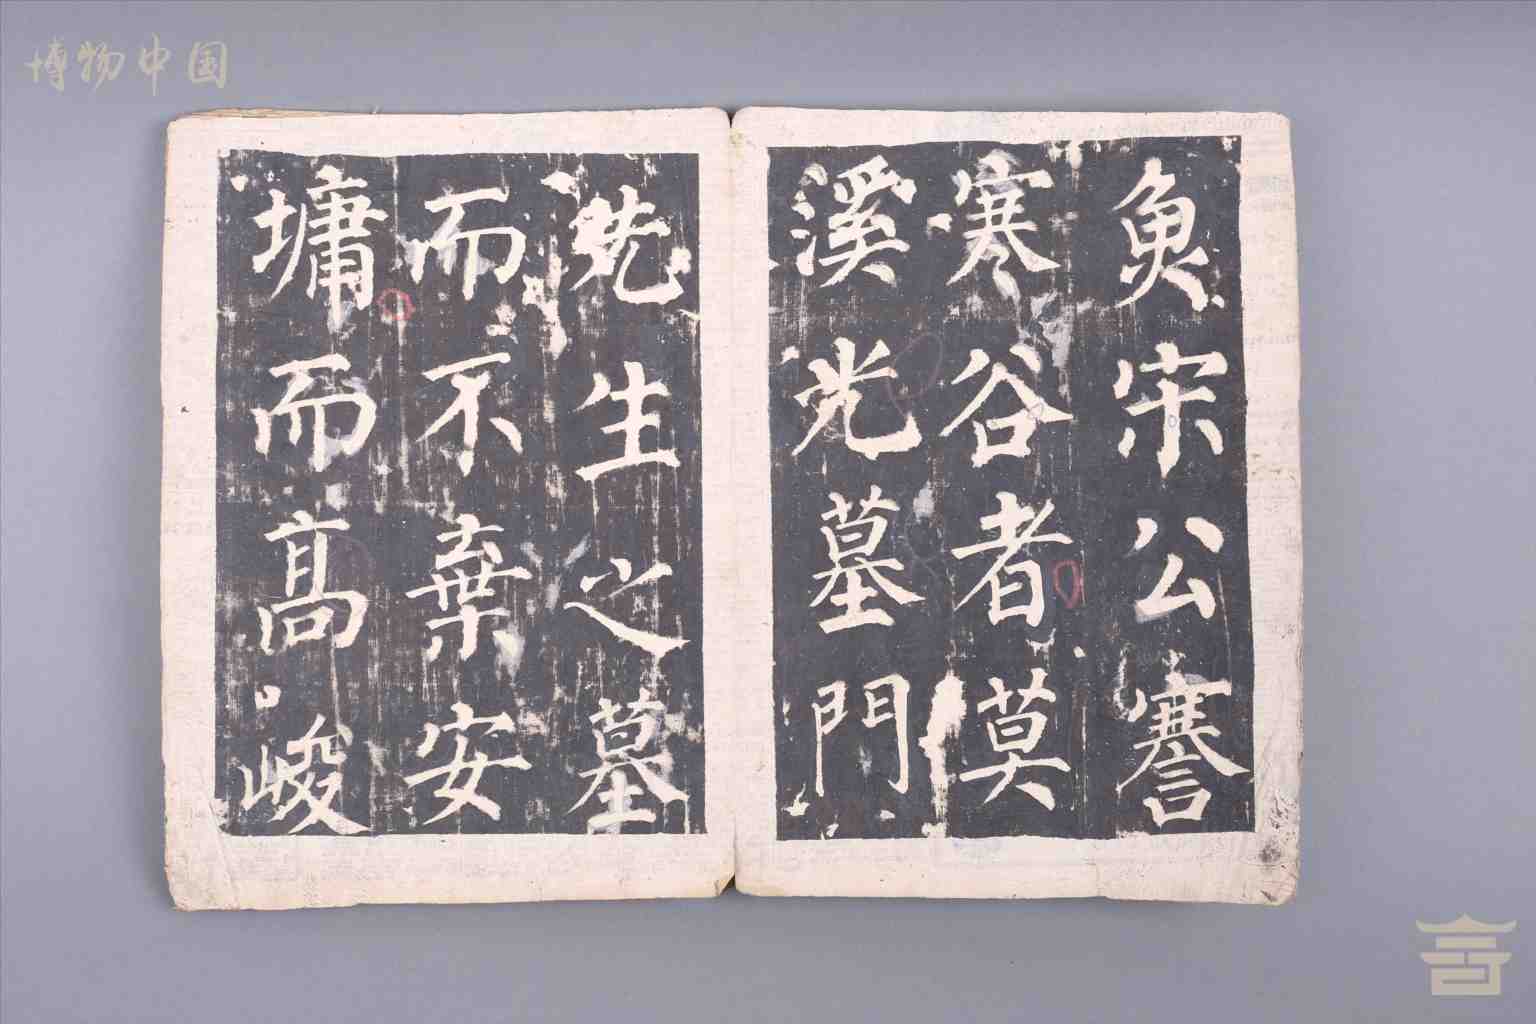 博物中国
奂宋公謇
寒谷者莫
溪光墓門
先生之墓
而不棄安
墉而高峻